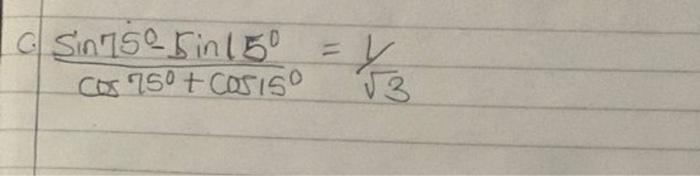 c. Sin75° - Sin15° / cos 75° + cos15° = 1/√3